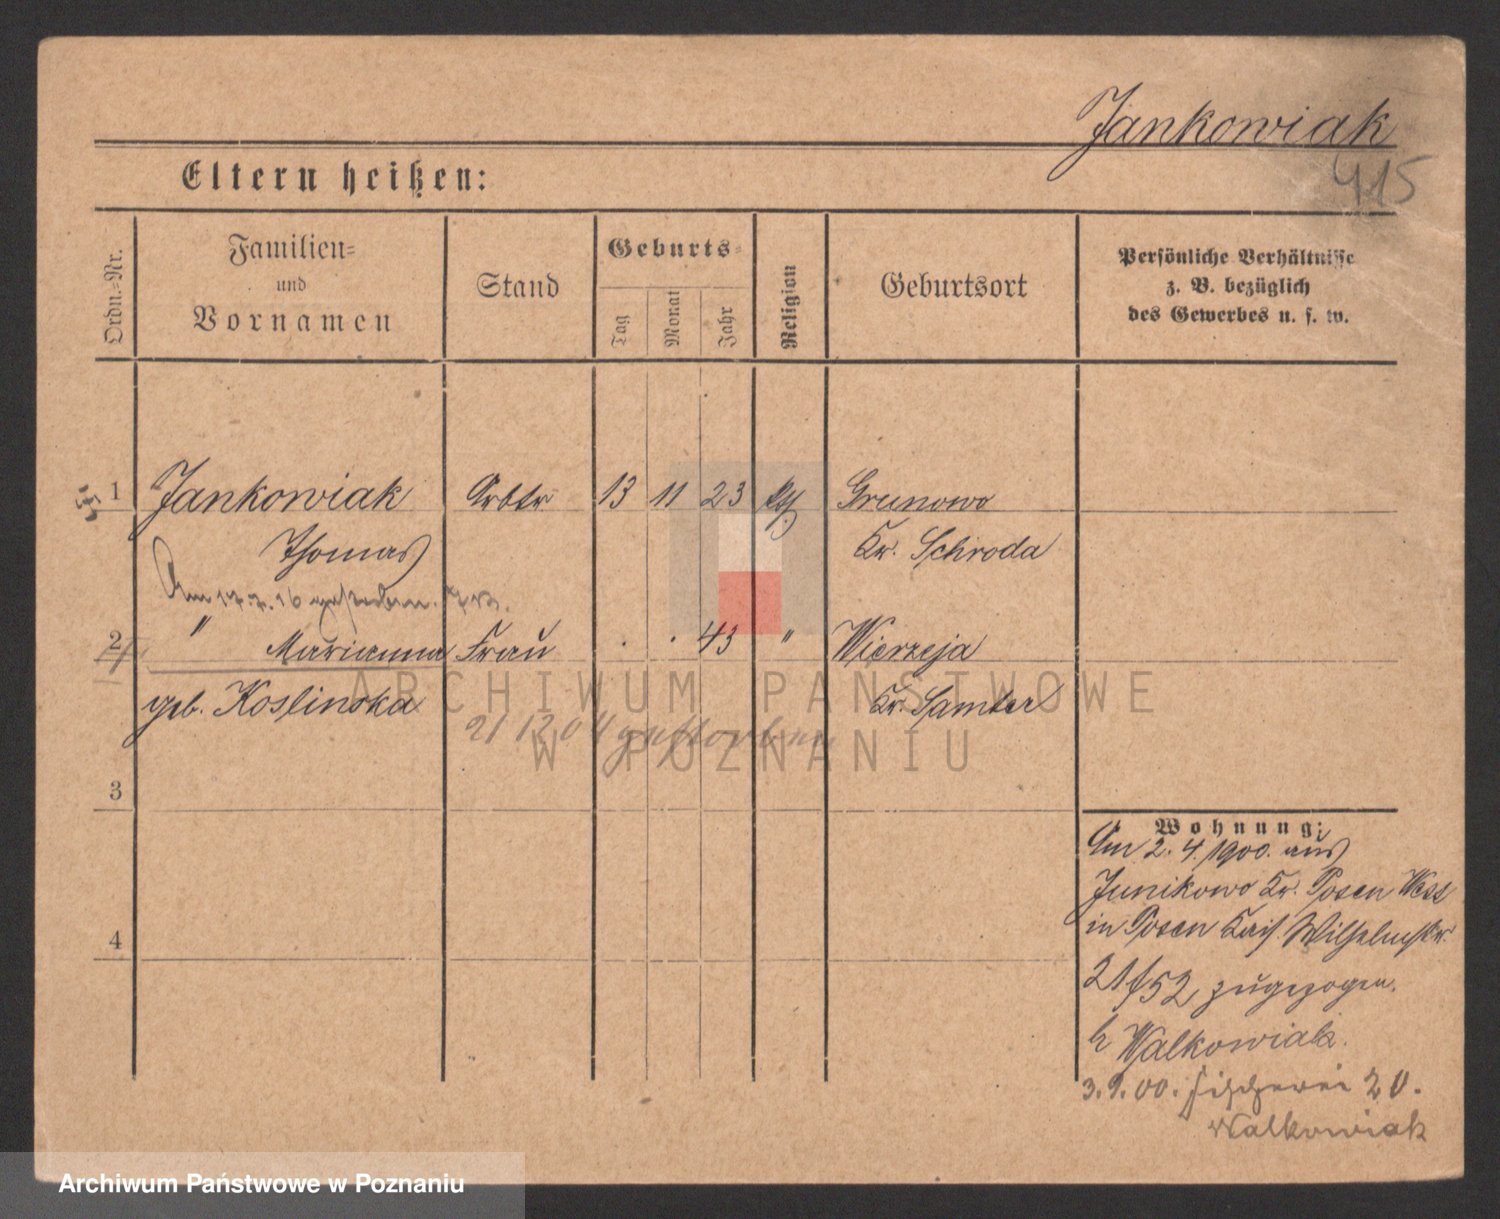 Jankowiak
415
Eltern heißen:
Ordn.-Nr.
Familien-
und
Vornamen
Stand
Geburts-
Tag
Monat
Jahr
Religion
Geburtsort
Persönliche Verhältnisse
z. B. bezüglich
des Gewerbes u. s. w.
1 Jankowiak Arbtr 13 11 23 Grunowo
Thomas Kr. Schroda
Am 17.7.16 gestorben.
2 " Marianna Frau . . 43 " Wierzeja
geb. Koslinska Kr. Samter
21 12 04 gestorben
3
4
Wohnung:
Am 2. 4. 1900. aus
Junikowo Kr. Posen West
in Posen Kais. Wilhelmstr.
21/52, zugezogen.
b Walkowiak.
3.9.00. Fischerei 20.
Walkowiak
ARCHIWUM PAŃSTWOWE
W POZNANIU
Archiwum Państwowe w Poznaniu